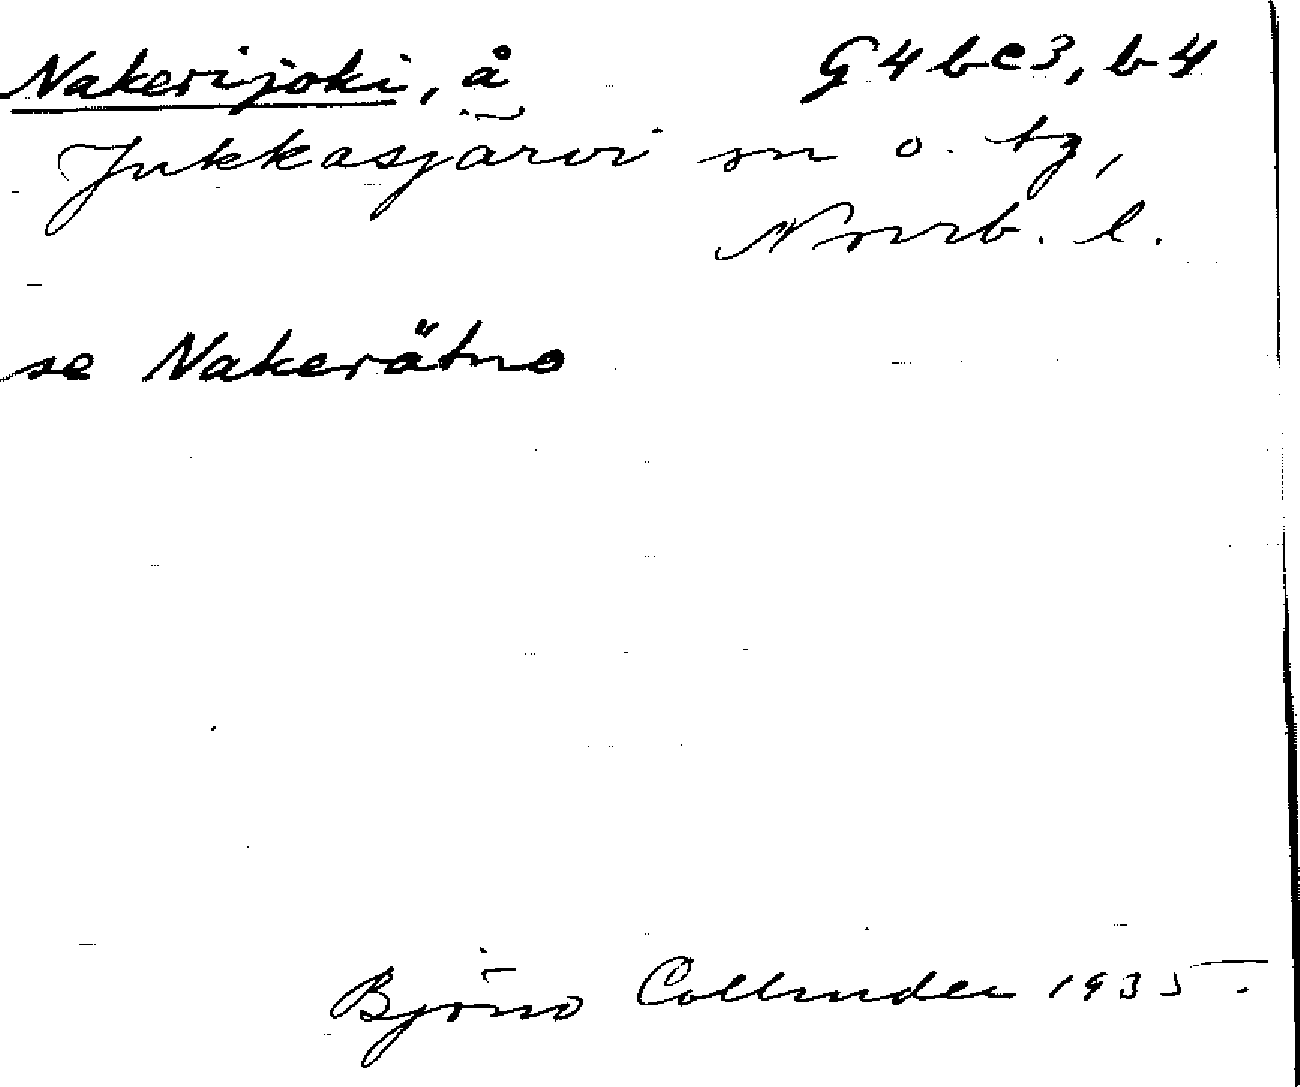 Nakerijoki, å G4bc3, b4
Jukkasjärvi sn o. tg,
Norrb. l.
se Nakerätno
Björn Collinder 1935.